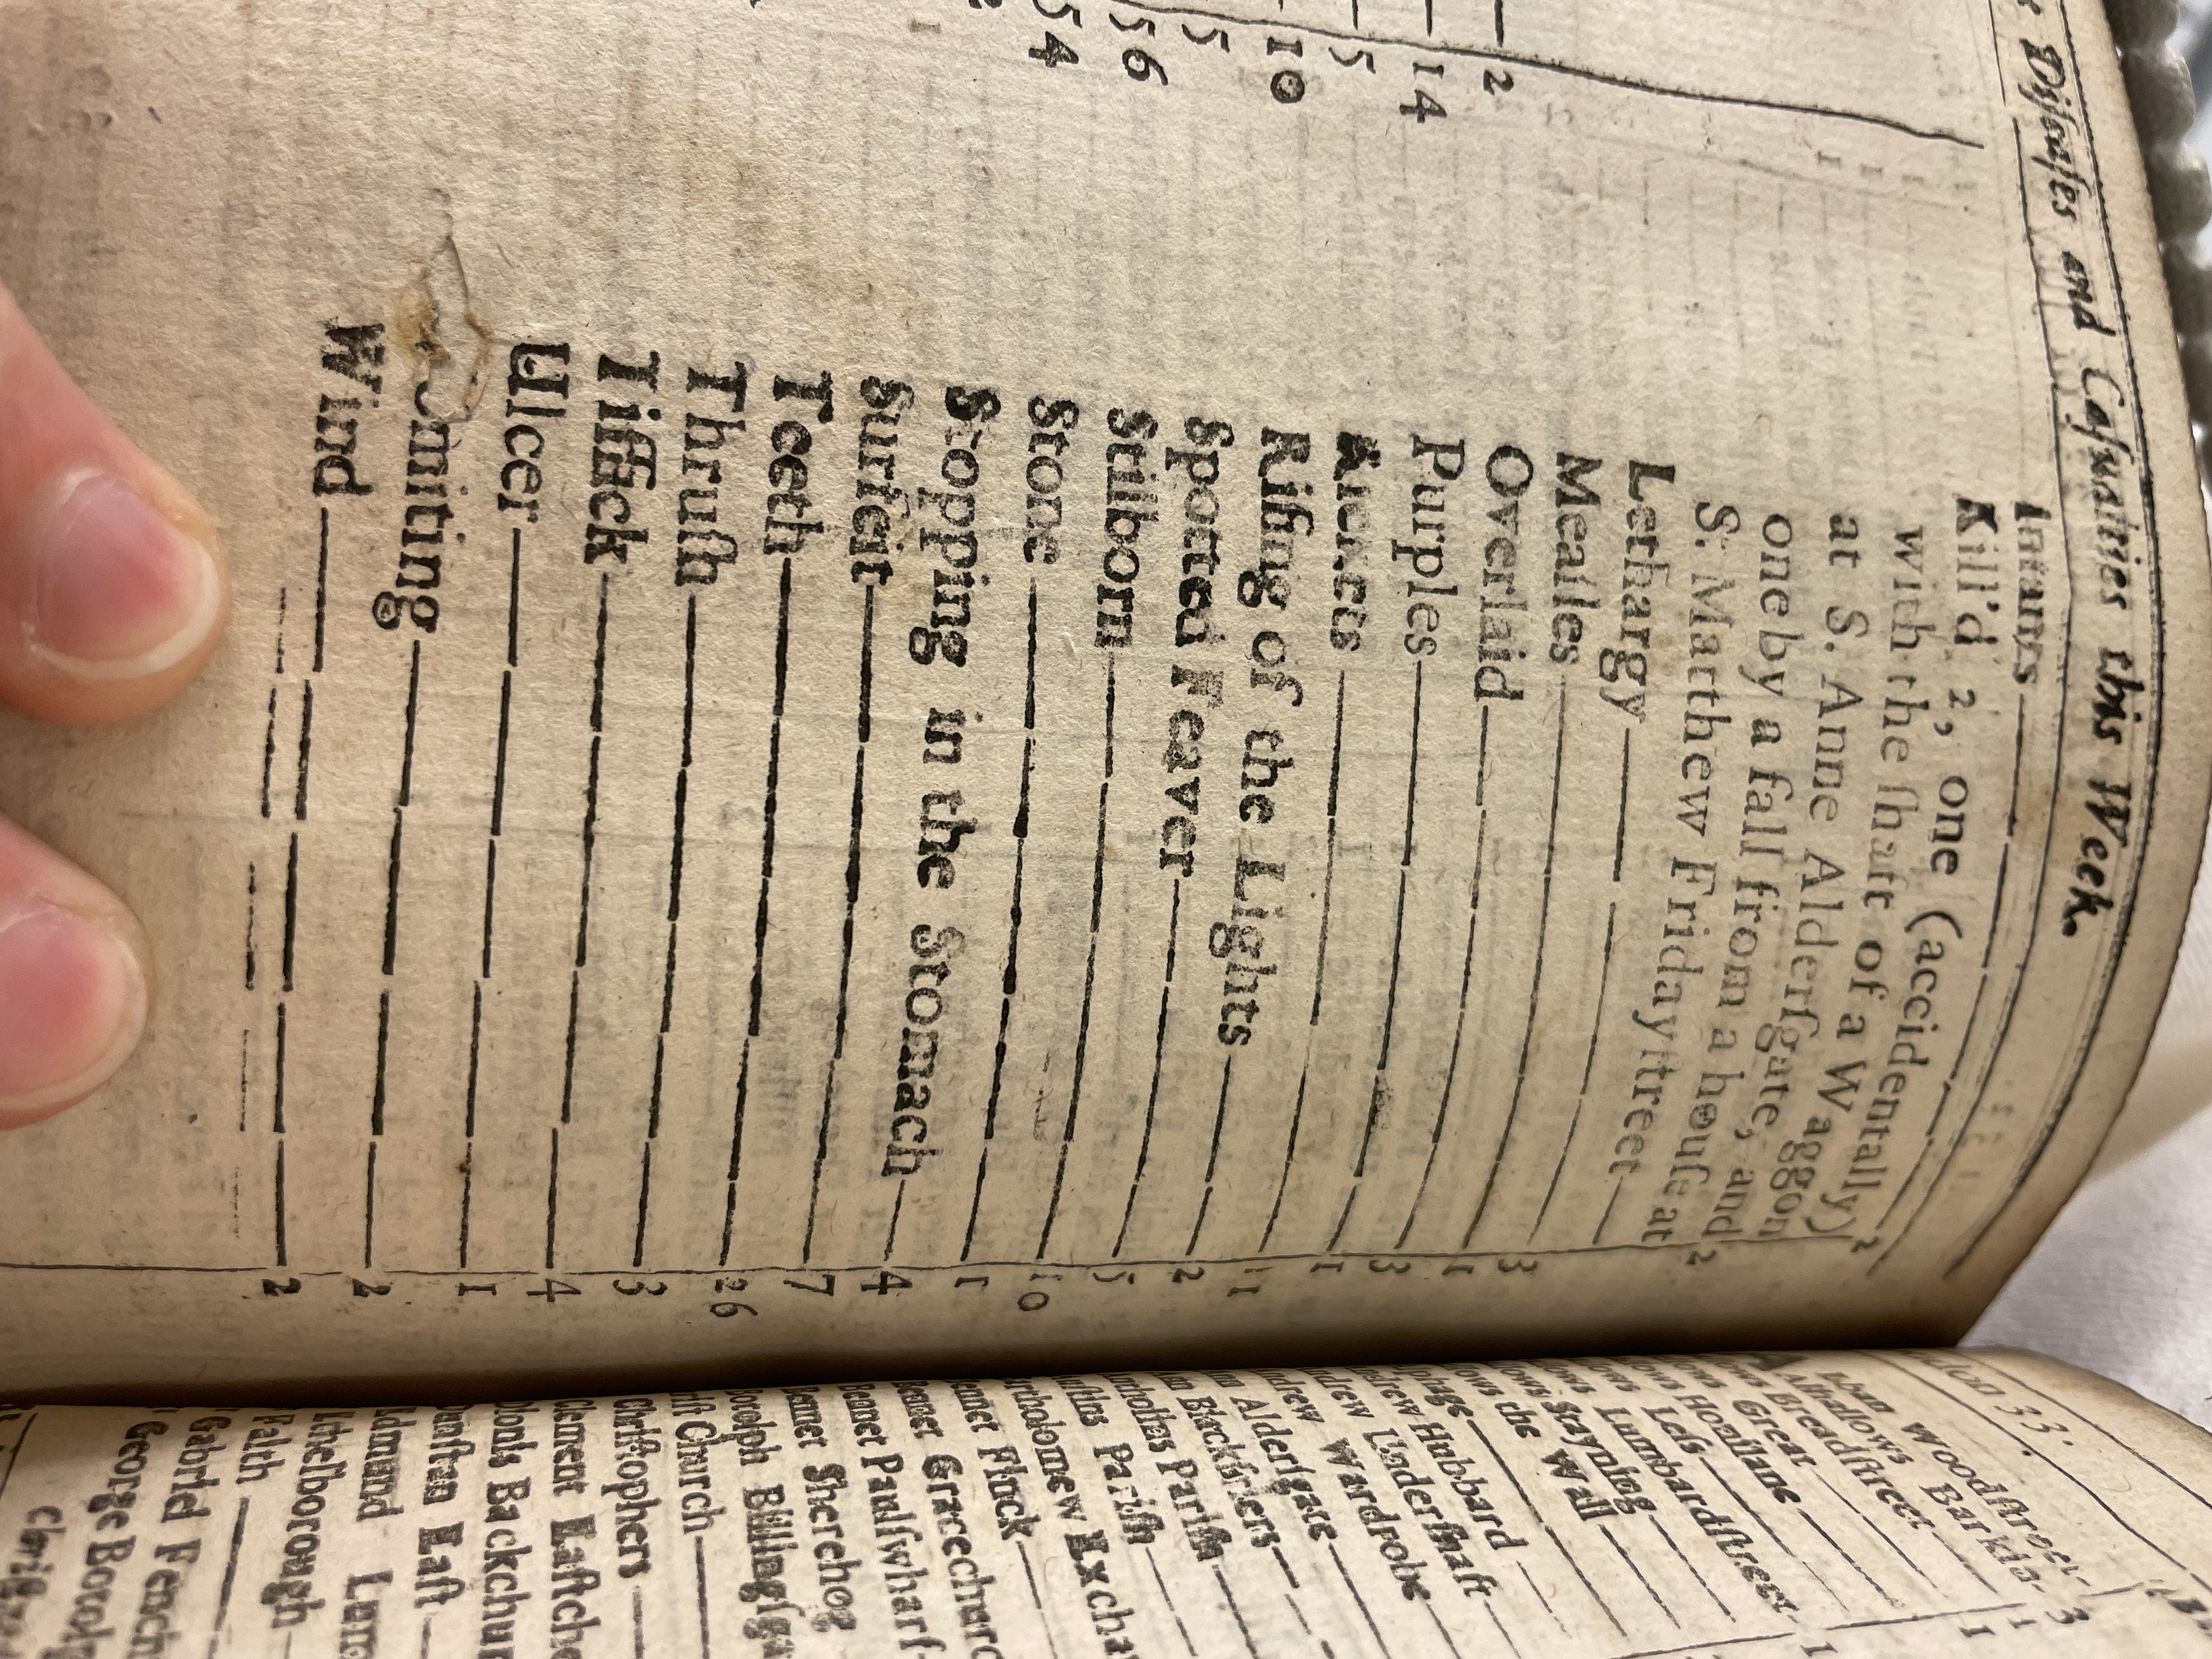 Diſeaſes and Caſualties this Week.
2
14
5
10
5
56
54
Infants 2
Kill'd 2, one (accidentally)
with the ſhaft of a Waggon
at S. Anne Alderſgate, and
one by a fall from a houſe at
S. Matthew Fridayſtreet 2
Lethargy
Meaſles 3
Overlaid 1
Purples 3
Rickets 1
Riſing of the Lights 11
Spotted Feaver 2
Stilborn 5
Stone 10
Stopping in the Stomach 1
Surfeit 4
Teeth 7
Thruſh 26
Tiſſick 3
Ulcer 4
Vomiting 1
Wind 2
2
33.
Alban Woodſtreet
Alhallows Barkin 3
Breadſtreet 1
Great 1
Honilane
Leſs
Lumbardſtreet 1
Stayning
the Wall
Hubbard
Underſhaft
Wardrobe
Alderſgate
Blackfriers
Pariſh
Pariſh
Exchan
Finck
Gracechurc
Paulſwharf
Sherehog
Billingſga
Church
Chriſtophers
Clement Eaſtche
Dionis Backchur
Dunſtan Eaſt
Edmund Lum
Ethelborough
Faith
Gabriel Fench
George Botolp
Chriſt